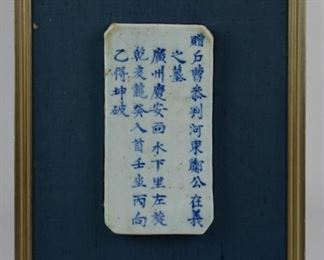 贈戶曹參判河東鄭公在義
之墓
廣州慶安面水下里左旋
乾亥龍癸入首壬坐丙向
乙得坤破